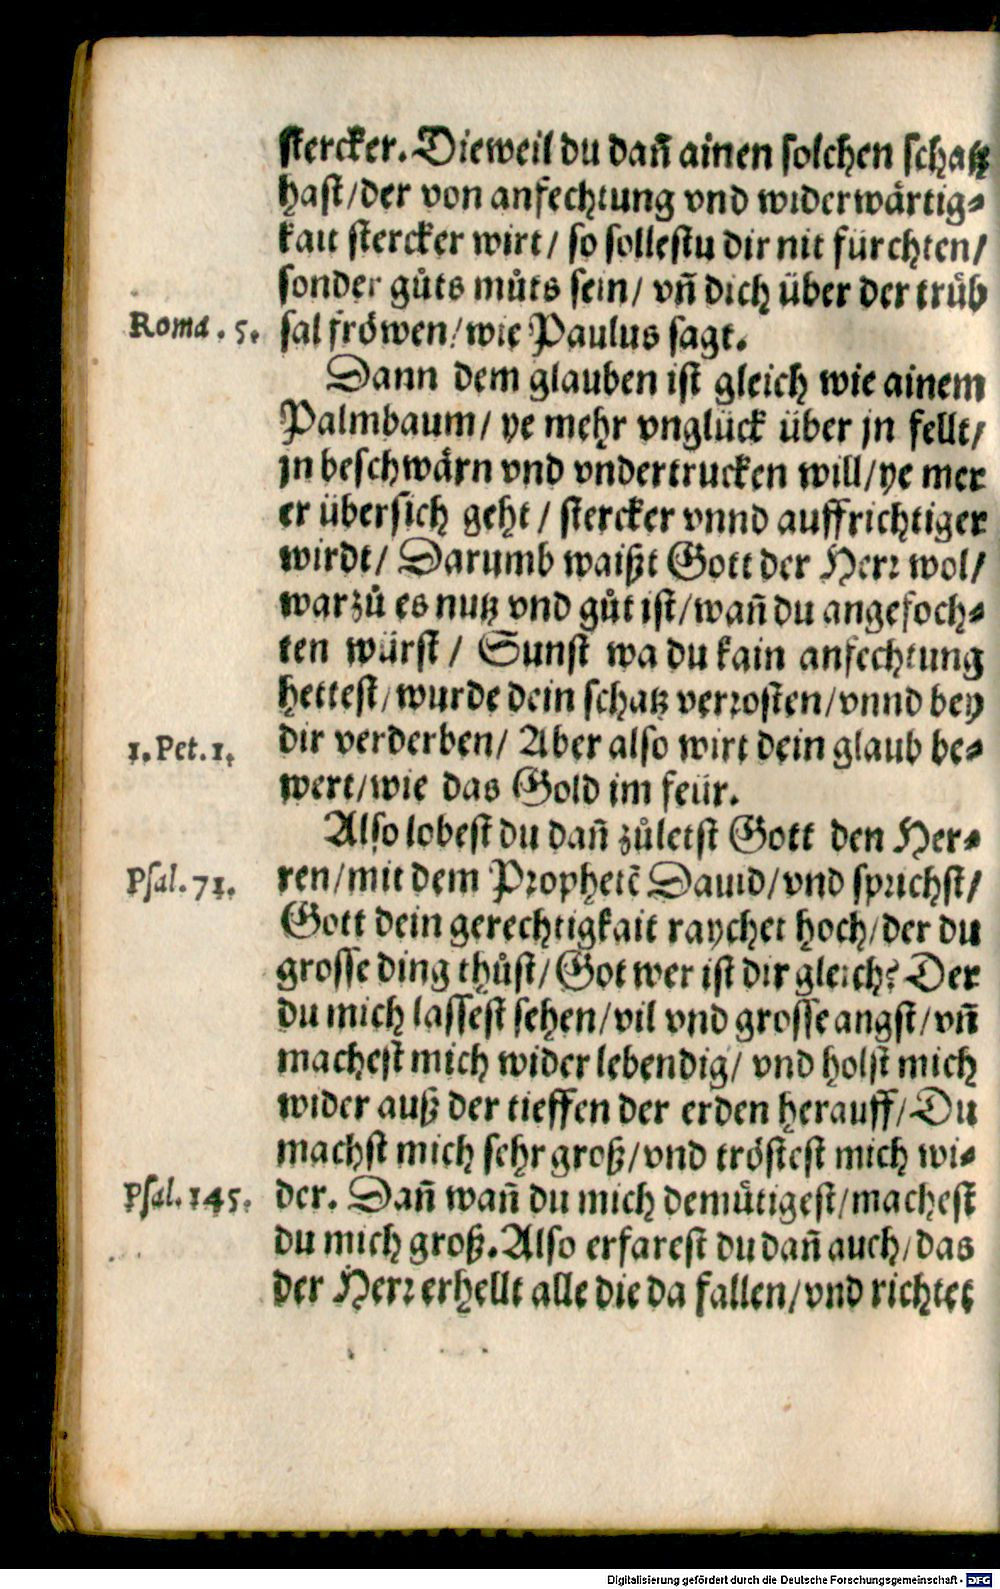 stercker. Dieweil du dañ ainen solchen schatz
hast/der von anfechtung vnd widerwårtig⸗
kait stercker wirt/ so sollestu dir nit fürchten/
sonder gůts můts sein/ vñ dich über der trůb
Roma. 5. sal fröwen/wie Paulus sagt.
Dann dem glauben ist gleich wie ainem
Palmbaum/ ye mehr vnglück über jn fellt/
jn beschwårn vnd vndertrucken will/ye mer
er übersich geht/ stercker vnnd auffrichtiger
wirdt/ Darumb waißt Gott der Herr wol/
warzů es nutz vnd gůt ist/wañ du angefoch⸗
ten würst/ Sunst wa du kain anfechtung
hettest/wurde dein schatz verrosten/vnnd bey
1. Pet. 1. dir verderben/ Aber also wirt dein glaub be⸗
wert/wie das Gold im feür.
Also lobest du dañ zůletst Gott den Her⸗
Psal. 71. ren/mit dem Prophetẽ Dauid/vnd sprichst/
Gott dein gerechtigkait raychet hoch/der du
grosse ding thůst/Got wer ist dir gleich? Der
du mich lassest sehen/vil vnd grosse angst/vñ
machest mich wider lebendig/ vnd holst mich
wider auß der tieffen der erden herauff/Du
machst mich sehr groß/vnd tröstest mich wi⸗
Psal. 145. der. Dañ wañ du mich demůtigest/machest
du mich groß. Also erfarest du dañ auch/das
der Herr erhellt alle die da fallen/vnd richtet
Digitalisierung gefördert durch die Deutsche Forschungsgemeinschaft - DFG